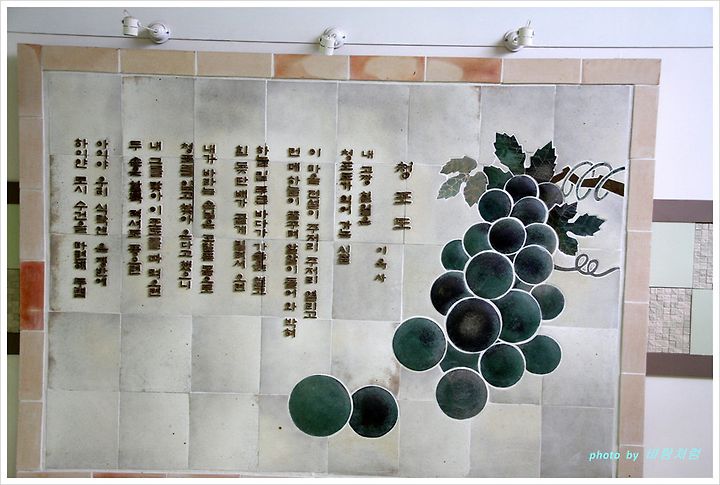 청 포 도
이육사
내 고장 칠월은
청포도가 익어 가는 시절
이 마을 전설이 주저리 주저리 열리고
먼데 하늘이 꿈꾸며 알알이 들어와 박혀
하늘 밑 푸른 바다가 가슴을 열고
흰 돛단배가 곱게 밀려서 오면
내가 바라는 손님은 고달픈 몸으로
청포를 입고 찾아 온다고 했으니
내 그를 맞아 이 포도를 따 먹으면
두 손을 함뿍 적셔도 좋으련
아이야 우리 식탁엔 은쟁반에
하이얀 모시 수건을 마련해 두렴
photo by 바람처럼